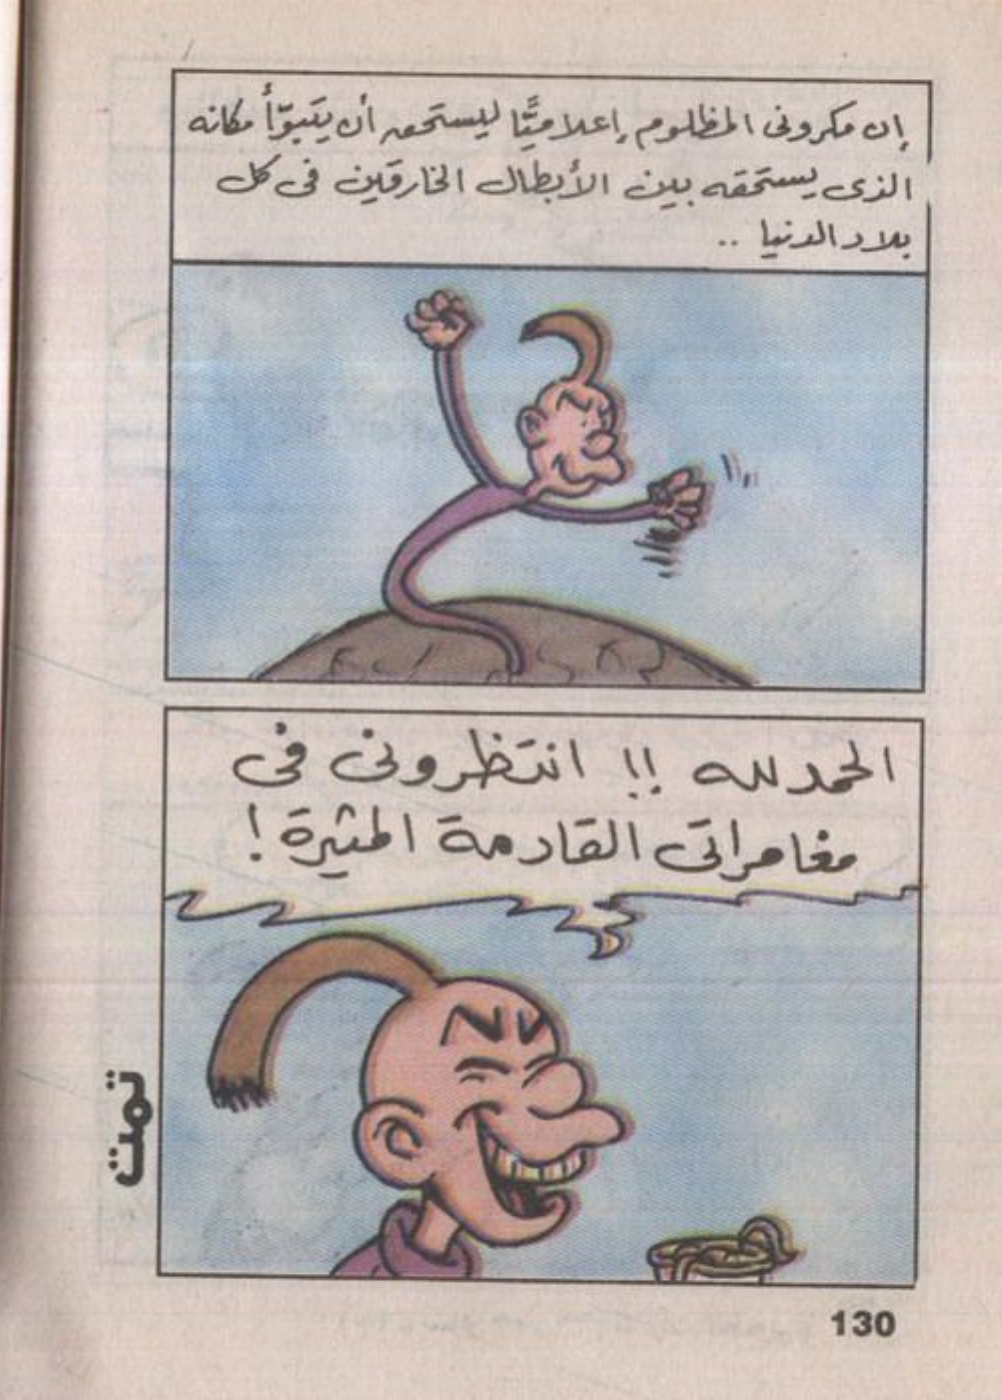 إن مكرونى المظلوم إعلاميًّا ليستحق أن يتبوّأ مكانه
الذى يستحقه بين الأبطال الخارقين فى كل
بلاد الدنيا ..
الحمد لله !! انتظرونى فى
مغامراتى القادمة المثيرة !
تمت
130